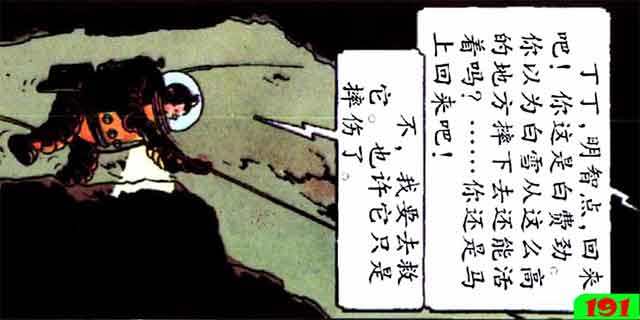 丁丁，明智点，回来
吧！你这是白费劲。
你以为白雪从这么高
的地方摔下去还能活
着吗？……你还是马
上回来吧！
不，我要去救
它。也许它只是
摔伤了。
191